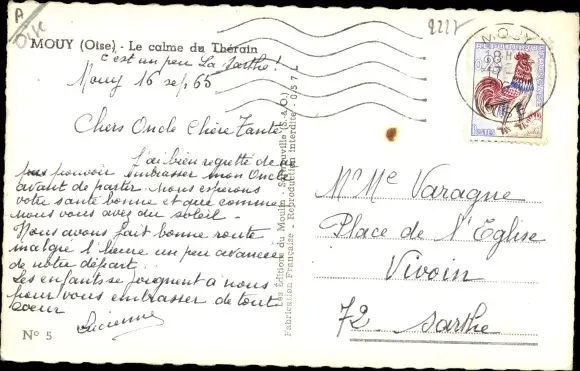 A
Oise
2227
MOUY (Oise) - Le calme du Thérain
c'est un peu la Sarthe !
Mouy 16 sep. 65
Chers Oncle Chère Tante
J'ai bien regretté de ne
pas pouvoir embrasser mon Oncle
avant de partir. nous espérons
votre santé bonne et que comme
nous vous avez du soleil -
Nous avons fait bonne route
malgré l'heure un peu avancée
de notre départ...
Les enfants se joignent à nous
pour vous embrasser de tout
coeur
Lucienne
N° 5
Les Éditions du Moulin - Sartrouville (S.-&-O.)
Fabrication Française - Reproduction interdite - O/S 7 L
MOUY
18 H
Mme Varagne
Place de l'Eglise
Vivoin
72 - Sarthe